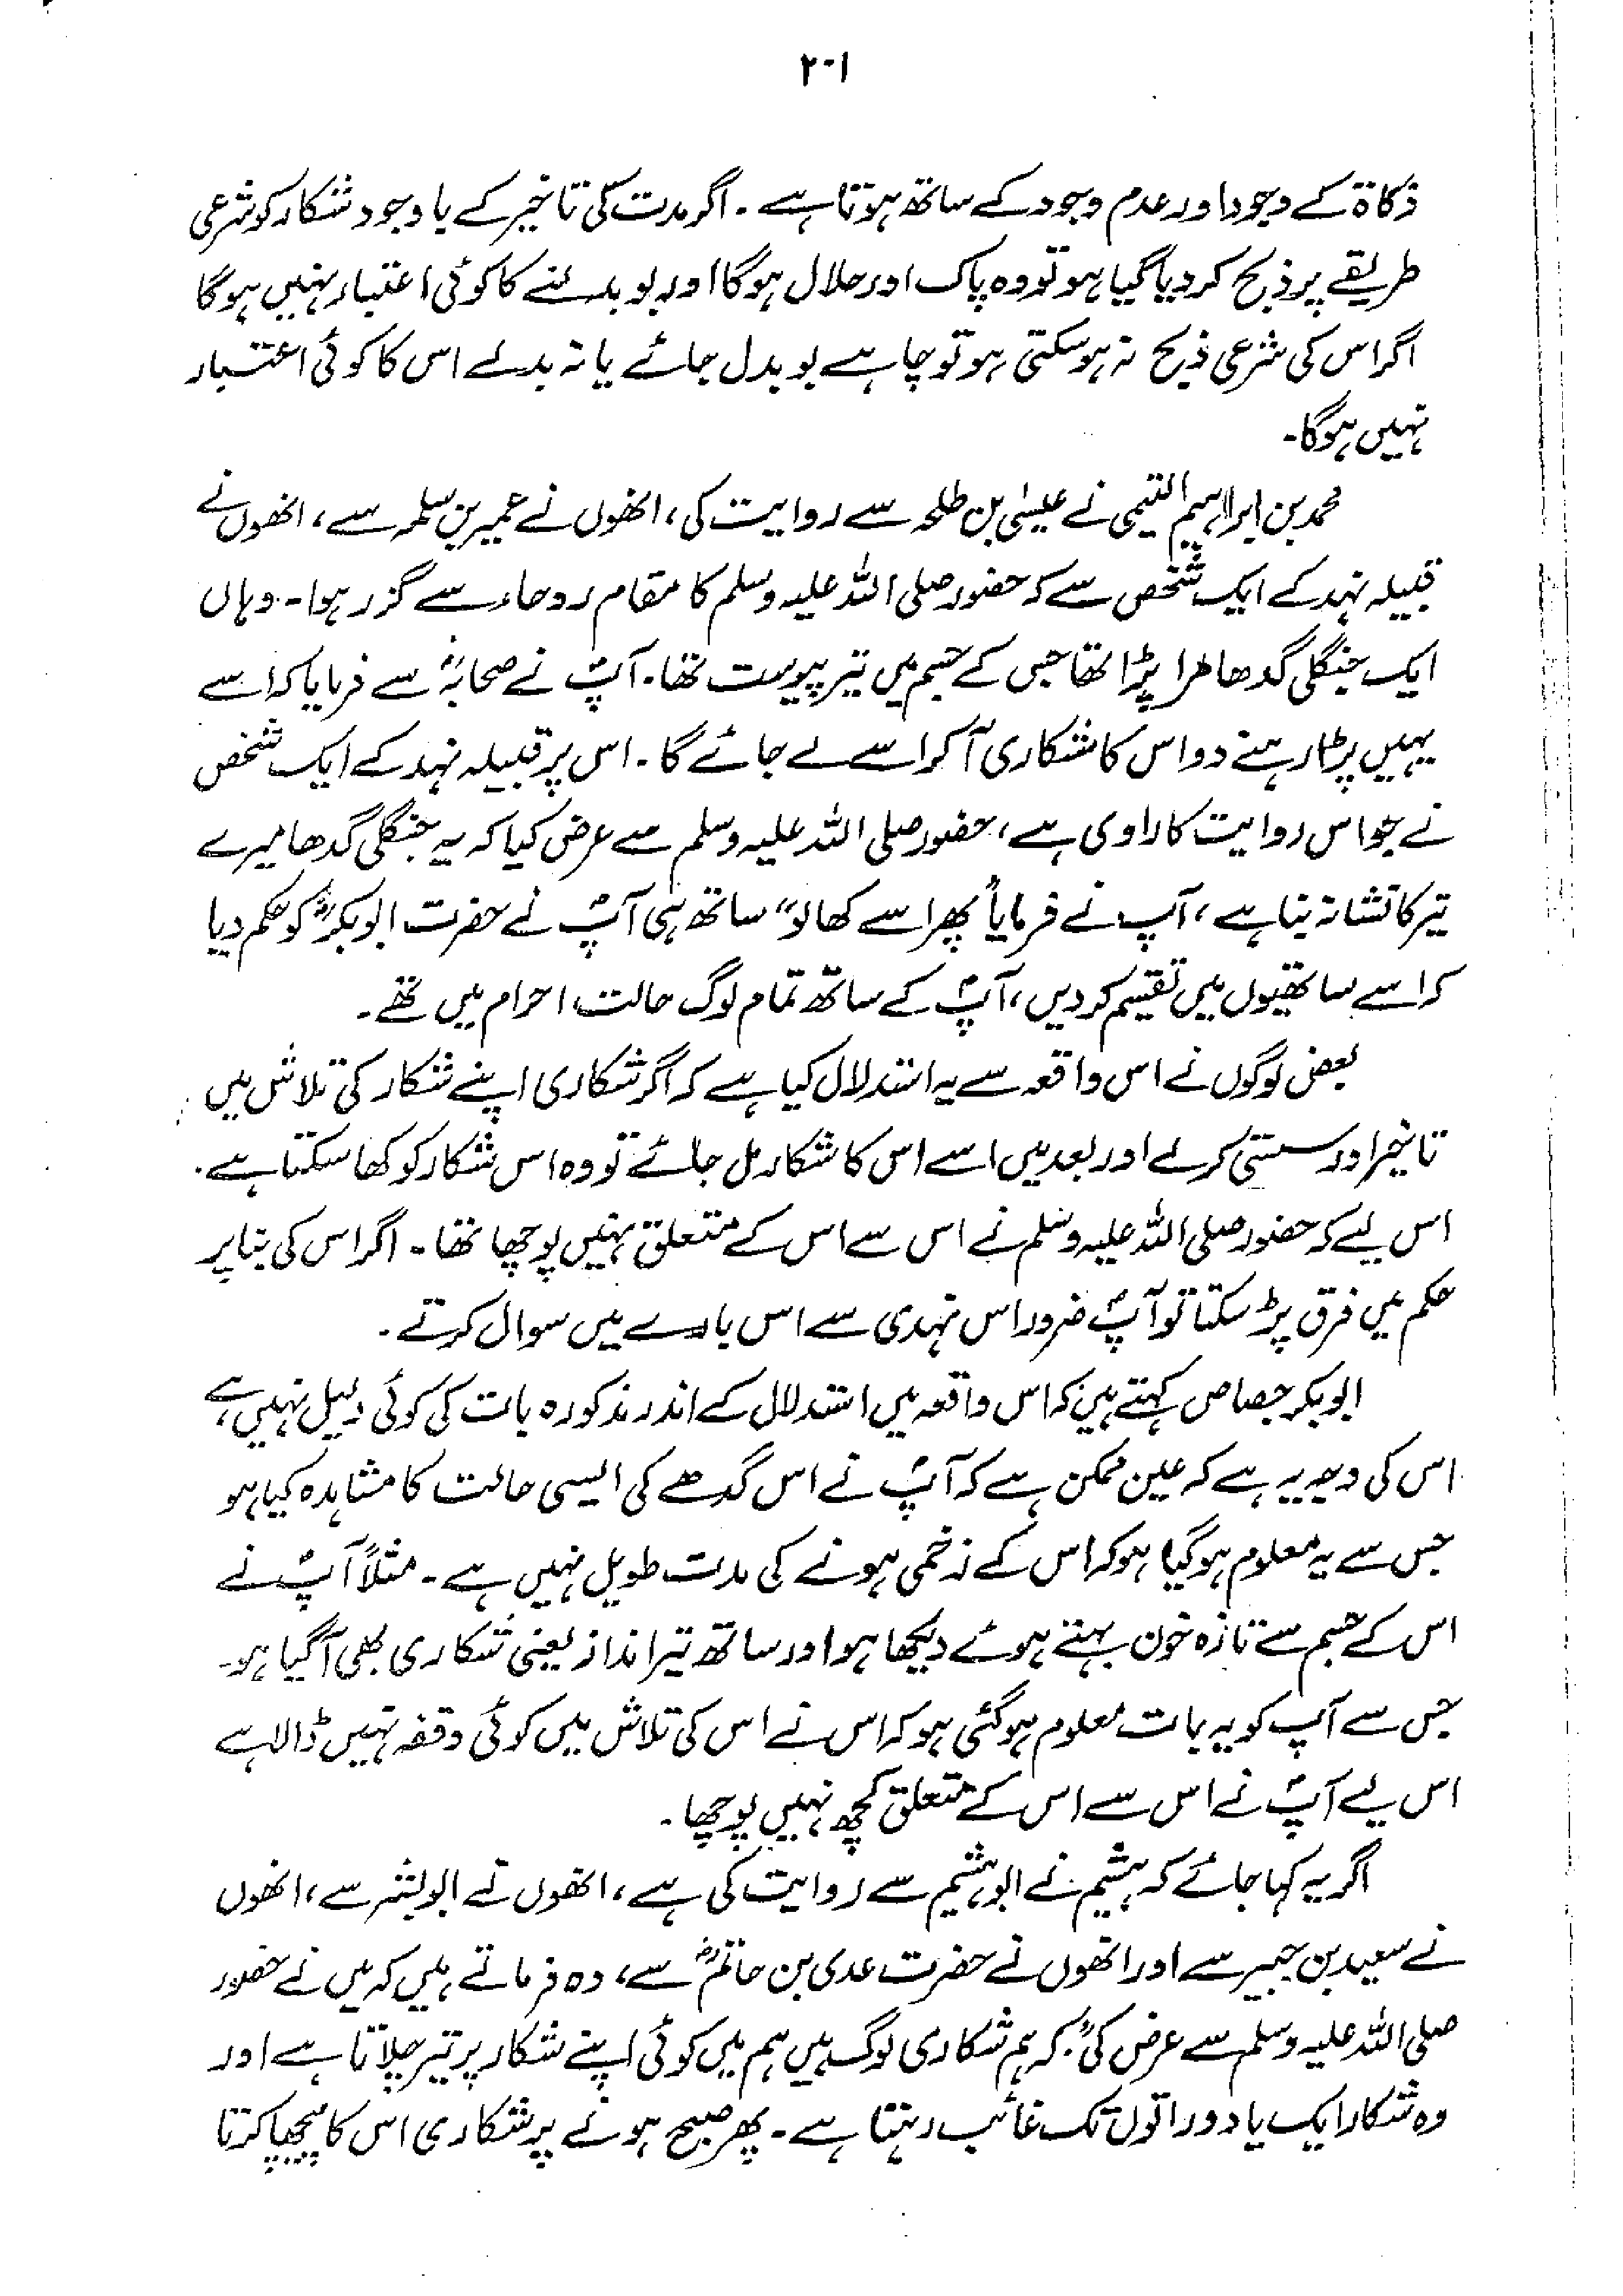 ۲۰۱
ذکاۃ کے وجود اور عدم وجود کے ساتھ ہوتا ہے ۔ اگر مدت کی تاخیر کے باوجود شکار کو شرعی
طریقے پر ذبح کر دیا گیا ہو تو وہ پاک اور حلال ہوگا اور بو بدلنے کا کوئی اعتبار نہیں ہوگا
اگر اس کی شرعی ذبح نہ ہوسکتی ہو تو چاہے بو بدل جائے یا نہ بدلے اس کا کوئی اعتبار
نہیں ہوگا۔
محمد بن ابراہیم التیمی نے عیسٰی بن طلحہ سے روایت کی، انھوں نے عمیر بن سلمہ سے، انھوں نے
قبیلہ نہد کے ایک شخص سے کہ حضور صلی اللہ علیہ وسلم کا مقام روحاء سے گزر ہوا۔ وہاں
ایک جنگلی گدھا مرا پڑا تھا جس کے جسم میں تیر پیوست تھا۔ آپؐ نے صحابہؓ سے فرمایا کہ اسے
یہیں پڑا رہنے دو اس کا شکاری آکر اسے لے جائے گا۔ اس پر قبیلہ نہد کے ایک شخص
نے جو اس روایت کا راوی ہے، حضور صلی اللہ علیہ وسلم سے عرض کیا کہ یہ جنگلی گدھا میرے
تیر کا نشانہ بنا ہے، آپ نے فرمایا “پھر اسے کھالو” ساتھ ہی آپؐ نے حضرت ابوبکرؓ کو حکم دیا
کہ اسے ساتھیوں میں تقسیم کر دیں، آپؐ کے ساتھ تمام لوگ حالت احرام میں تھے۔
بعض لوگوں نے اس واقعہ سے یہ استدلال کیا ہے کہ اگر شکاری اپنے شکار کی تلاش میں
تاخیر اور سستی کرلے اور بعد میں اسے اس کا شکار مل جائے تو وہ اس شکار کو کھا سکتا ہے۔
اس لیے کہ حضور صلی اللہ علیہ وسلم نے اس سے اس کے متعلق نہیں پوچھا تھا۔ اگر اس کی بنا پر
حکم میں فرق پڑ سکتا تو آپؐ ضرور اس نہدی سے اس بارے میں سوال کرتے۔
ابوبکر جصاص کہتے ہیں کہ اس واقعہ میں استدلال کے اندر مذکورہ بات کی کوئی دلیل نہیں ہے،
اس کی وجہ یہ ہے کہ عین ممکن ہے کہ آپؐ نے اس گدھے کی ایسی حالت کا مشاہدہ کیا ہو
جس سے یہ معلوم ہوگیا ہو کہ اس کے زخمی ہونے کی مدت طویل نہیں ہے۔ مثلاً آپؐ نے
اس کے جسم سے تازہ خون بہتے ہوئے دیکھا ہو اور ساتھ تیر انداز یعنی شکاری بھی آگیا ہو۔
جس سے آپ کو یہ بات معلوم ہوگئی ہو کہ اس نے اس کی تلاش میں کوئی وقفہ نہیں ڈالا ہے
اس لیے آپؐ نے اس سے اس کے متعلق کچھ نہیں پوچھا۔
اگر یہ کہا جائے کہ ہشیم نے ابوہشیم سے روایت کی ہے، انھوں نے ابوبشر سے، انھوں
نے سعید بن جبیر سے اور انھوں نے حضرت عدی بن حاتمؓ سے، وہ فرماتے ہیں کہ میں نے حضور
صلی اللہ علیہ وسلم سے عرض کی “کہ ہم شکاری لوگ ہیں ہم میں کوئی اپنے شکار پر تیر چلاتا ہے اور
وہ شکار ایک یا دو راتوں تک غائب رہتا ہے۔ پھر صبح ہونے پر شکاری اس کا پیچھا کرتا